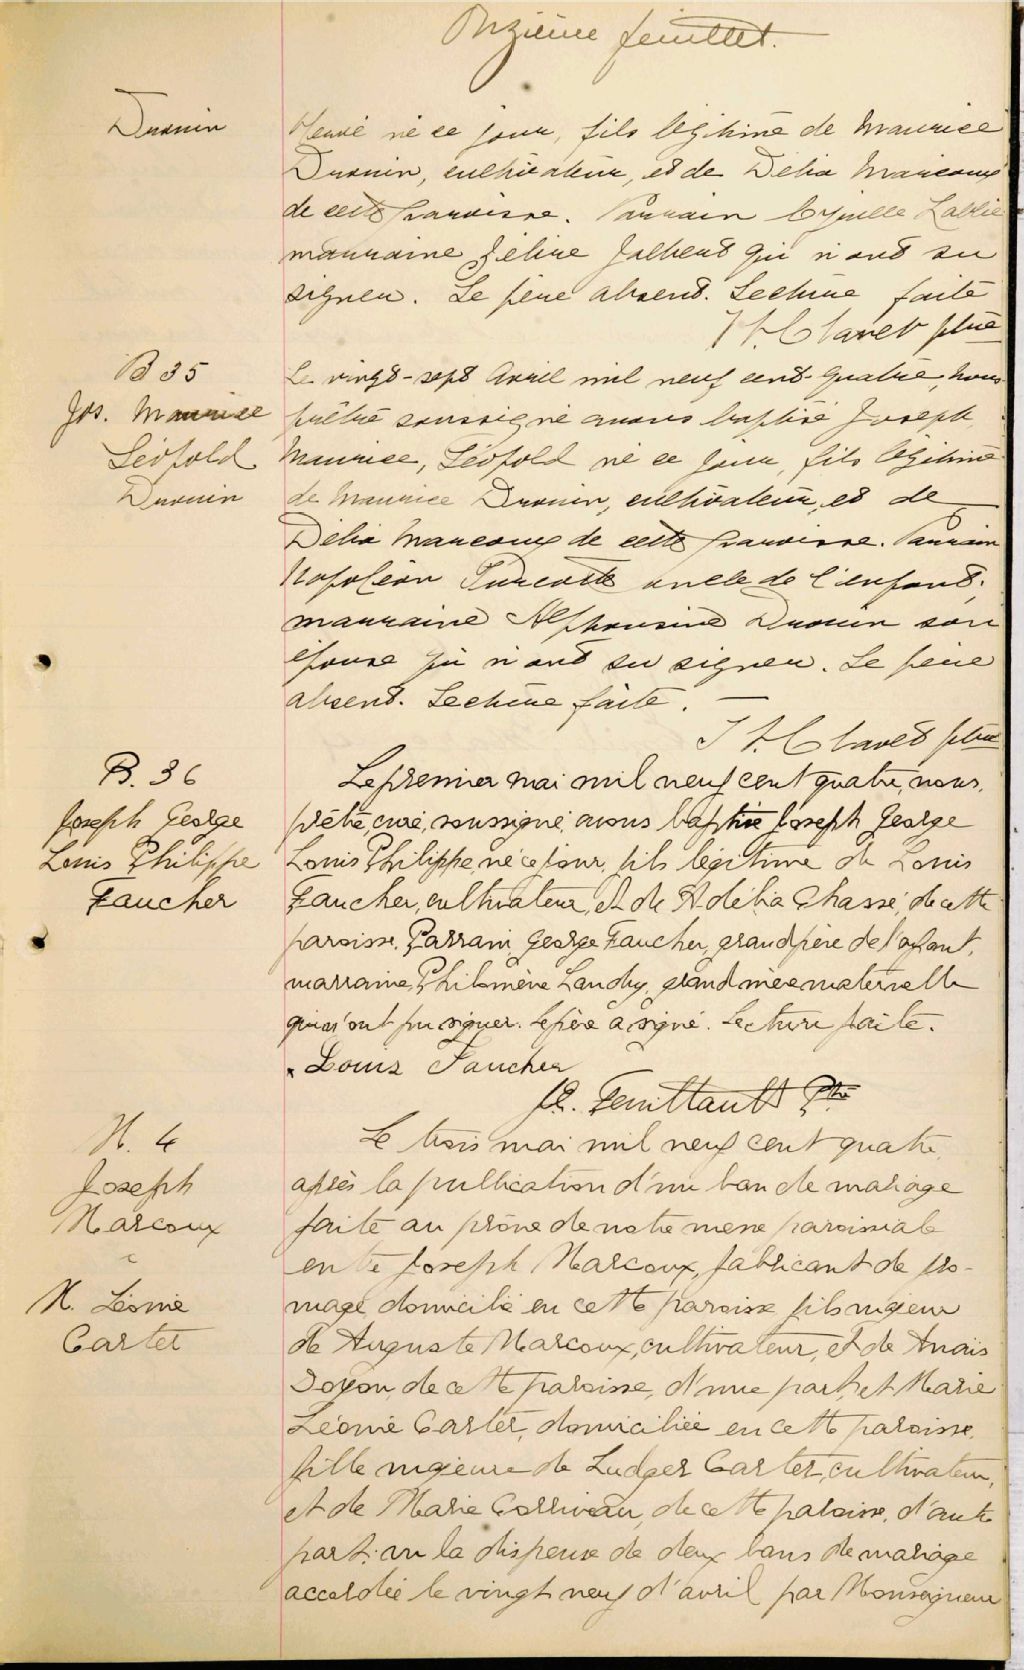 Onzième feuillet.
Drouin
Hervé né ce jour, fils légitime de Maurice
Drouin, cultivateur, et de Delia Marcoux
de cette paroisse. Parrain Cyrille
marraine Zéline Jalbert qui n'ont su
signer. Le père absent. Lecture faite
Clavet ptre
B 35
Jos. Maurice
Léopold
Drouin
Le vingt-sept Avril mil neuf cent-quatre, nous
prêtre soussigné avons baptisé Joseph
Maurice, Léopold né ce jour, fils légitime
de Maurice Drouin, cultivateur, et de
Délia Marcoux de cette paroisse. Parrain
Napoléon Turcotte oncle de l'enfant,
marraine Alphonsine Drouin son
épouse qui n'ont su signer. Le père
absent. Lecture faite. —
Clavet ptre
B. 36
Joseph George
Louis Philippe
Faucher
Le premier mai mil neuf cent quatre, nous,
prêtre, curé, soussigné, avons baptisé Joseph George
Louis Philippe, né ce jour, fils légitime de Louis
Faucher, cultivateur, et de Adélia Chassé, de cette
paroisse. Parrain, George Faucher, grand père de l'enfant,
marraine, Philomène Landry, grand mère maternelle
qui n'ont pu signer. Le père a signé. Lecture faite.
Louis Faucher
Feuiltault Ptre
M. 4
Joseph
Marcoux
&
M. Léonie
Carter
Le trois mai mil neuf cent quatre,
après la publication d'un ban de mariage
faite au prône de notre messe paroissiale
entre Joseph Marcoux, fabricant de fro-
mage domicilié en cette paroisse, fils majeur
de Auguste Marcoux, cultivateur, et de Anaïs
Doyon, de cette paroisse, d'une part, et Marie
Léonie Carter, domiciliée en cette paroisse,
fille majeure de Ludger Carter, cultivateur,
et de Marie Corriveau, de cette paroisse, d'autre
part: vu la dispense de deux bans de mariage
accordée le vingt neuf d'avril par Monseigneur